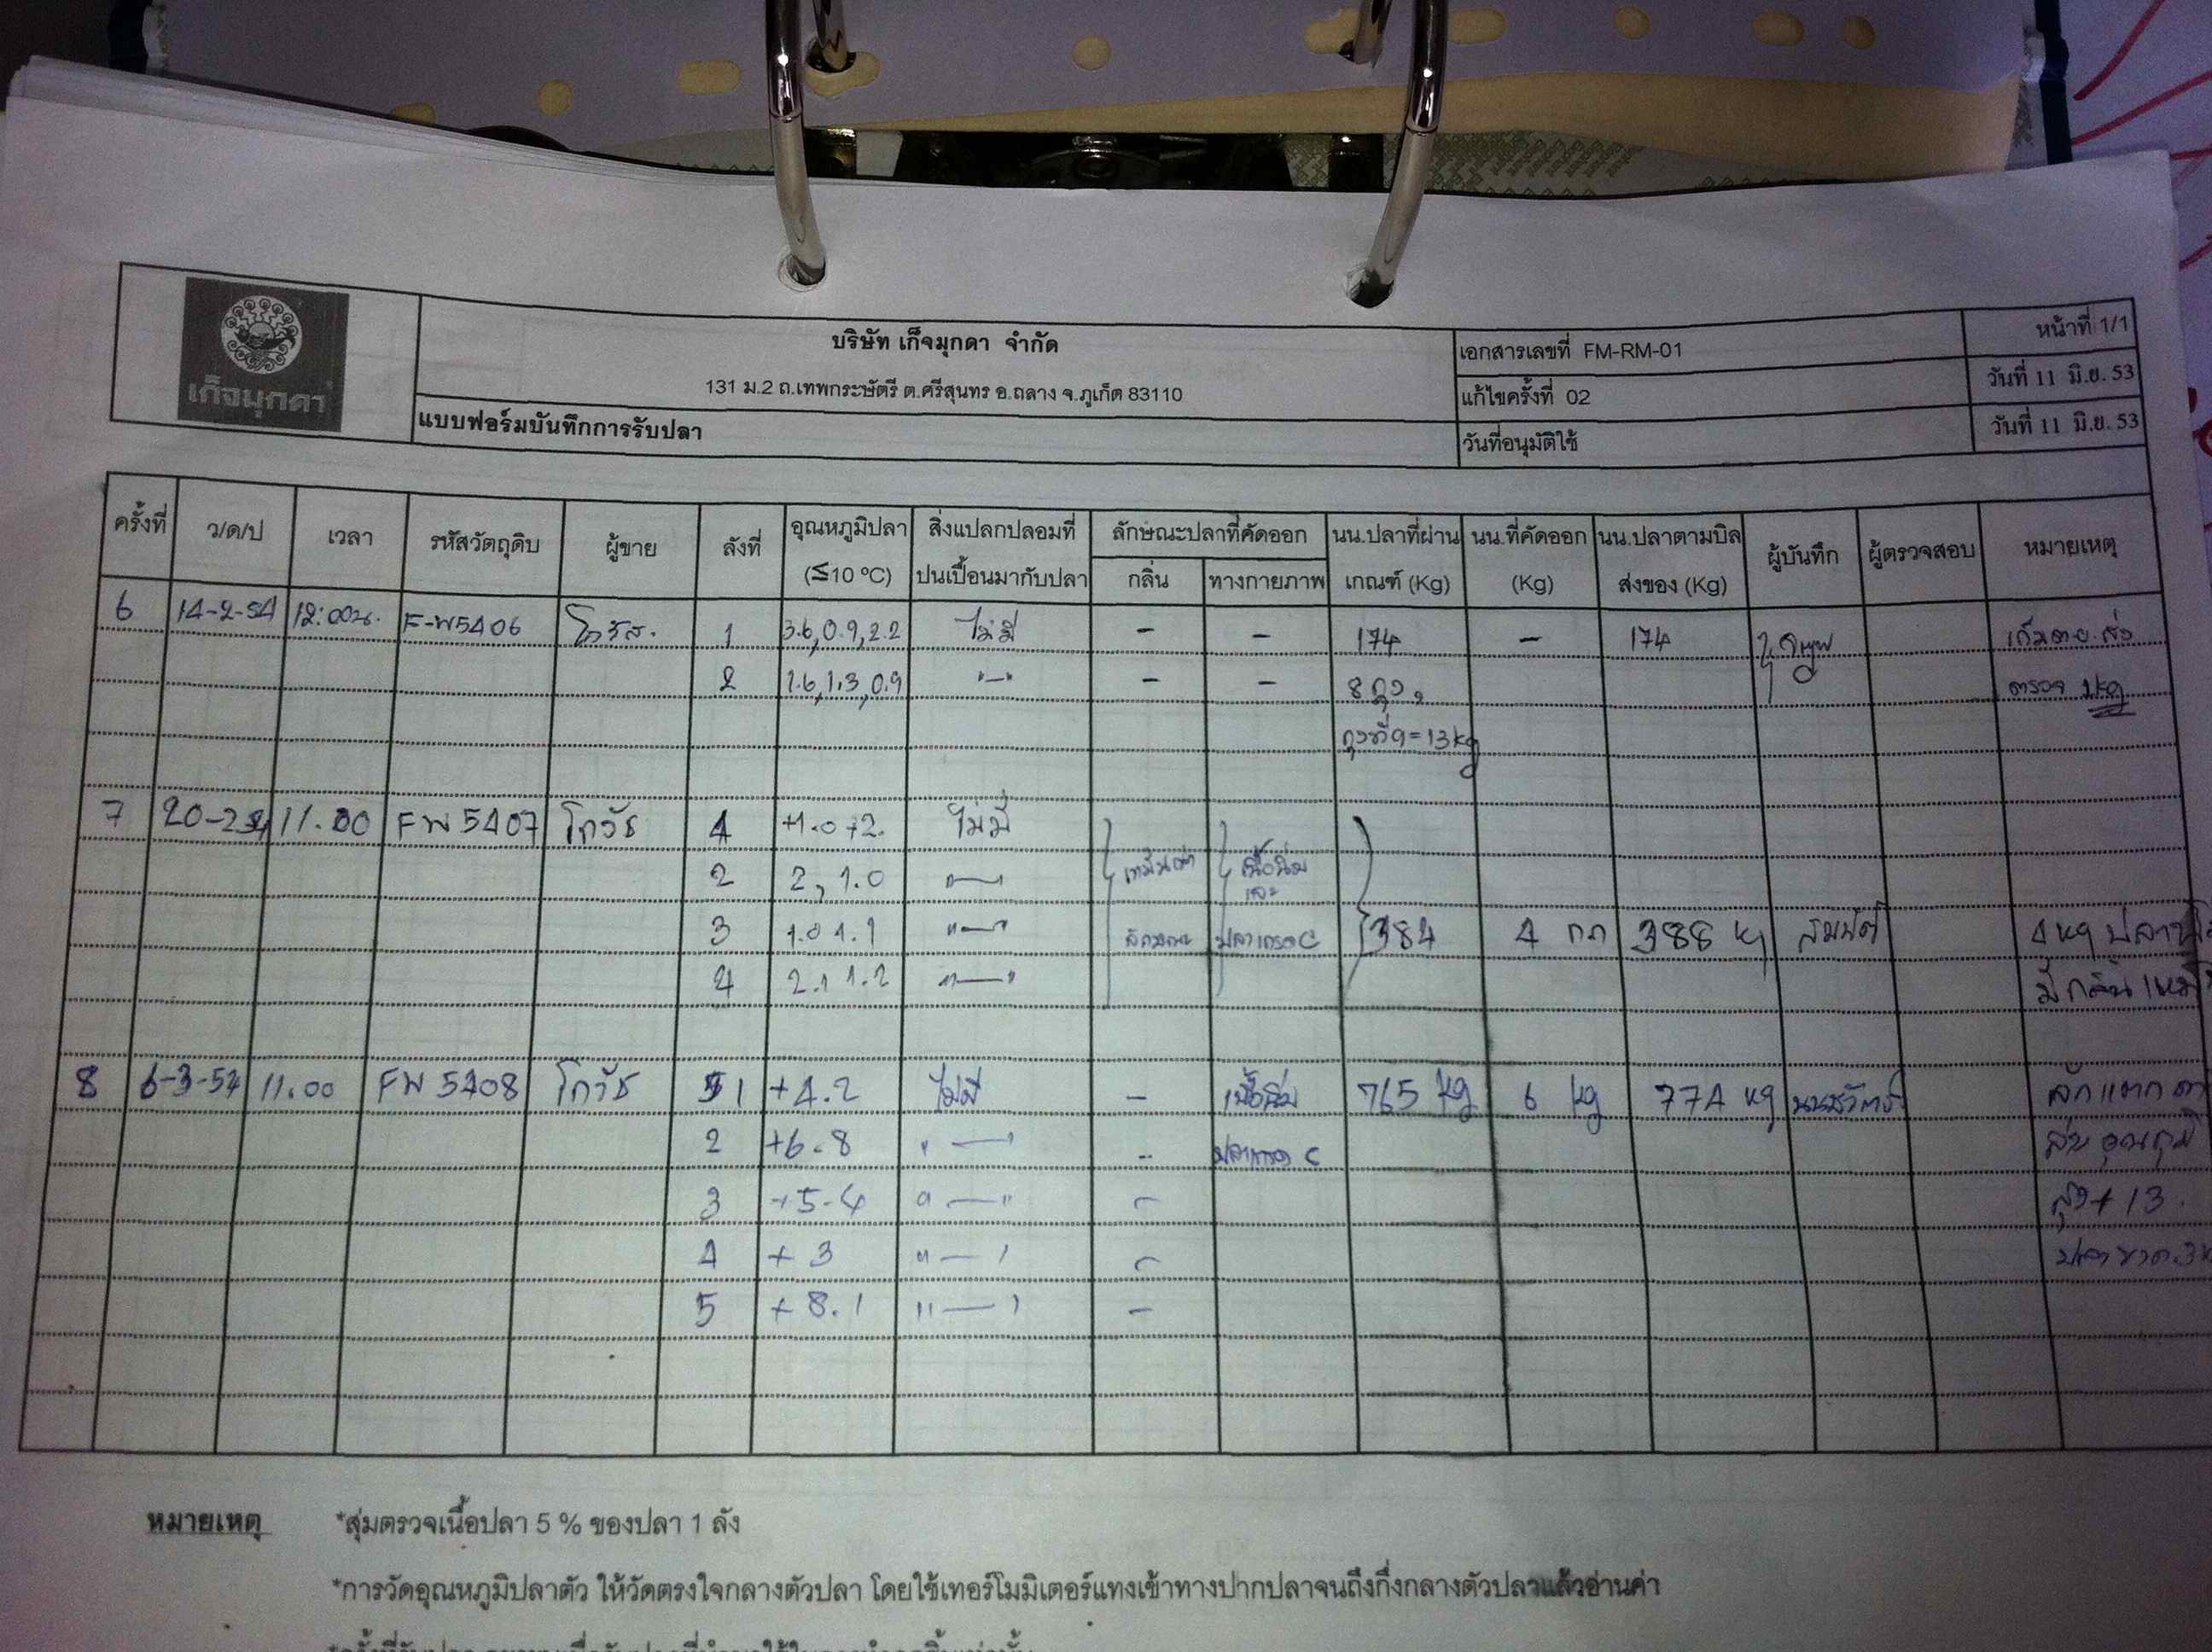 เก็จมุกดา
บริษัท เก็จมุกดา จำกัด
131 ม.2 ถ.เทพกระษัตรี ต.ศรีสุนทร อ.ถลาง จ.ภูเก็ต 83110
แบบฟอร์มบันทึกการรับปลา
เอกสารเลขที่ FM-RM-01 หน้าที่ 1/1
แก้ไขครั้งที่ 02 วันที่ 11 มิ.ย. 53
วันที่อนุมัติใช้ วันที่ 11 มิ.ย. 53
ครั้งที่ ว/ด/ป เวลา รหัสวัตถุดิบ ผู้ขาย ลังที่ อุณหภูมิปลา (≤10 ºC) สิ่งแปลกปลอมที่ ปนเปื้อนมากับปลา ลักษณะปลาที่คัดออก กลิ่น ทางกายภาพ นน.ปลาที่ผ่าน เกณฑ์ (Kg) นน.ที่คัดออก (Kg) นน.ปลาตามบิล ส่งของ (Kg) ผู้บันทึก ผู้ตรวจสอบ หมายเหตุ
6 14-2-54 12:00น. F-W5406 1 3.6,0.9,2.2 ไม่มี - - 174 - 174
2 1.6,1.3,0.9 "—" - - 8 ถุง
ถุงที่ 9 = 13 kg
7 11.00 FW 5407 โกวัช +1.0 +2. ไม่มี
2 2, 1.0 "—" เนื้อนิ่ม
และ
3 1.0 1.1 "—" ปลาเกรด C 384 4 กก 388 kg สมบัติ
4 2.1 1.2 "—" มีกลิ่น
8 6-3-54 11.00 FW 5408 โกวัช 1 +4.2 ไม่มี - เนื้อนิ่ม 765 kg 6 kg 774 kg
2 +6.8 "—" - ปลาเกรด C
3 +5.4 "—" - สูง +13
4 +3 "—" - ปลาขาด 3
5 +8.1 "—" -
หมายเหตุ *สุ่มตรวจเนื้อปลา 5 % ของปลา 1 ลัง
*การวัดอุณหภูมิปลาตัว ให้วัดตรงใจกลางตัวปลา โดยใช้เทอร์โมมิเตอร์แทงเข้าทางปากปลาจนถึงกึ่งกลางตัวปลาแล้วอ่านค่า